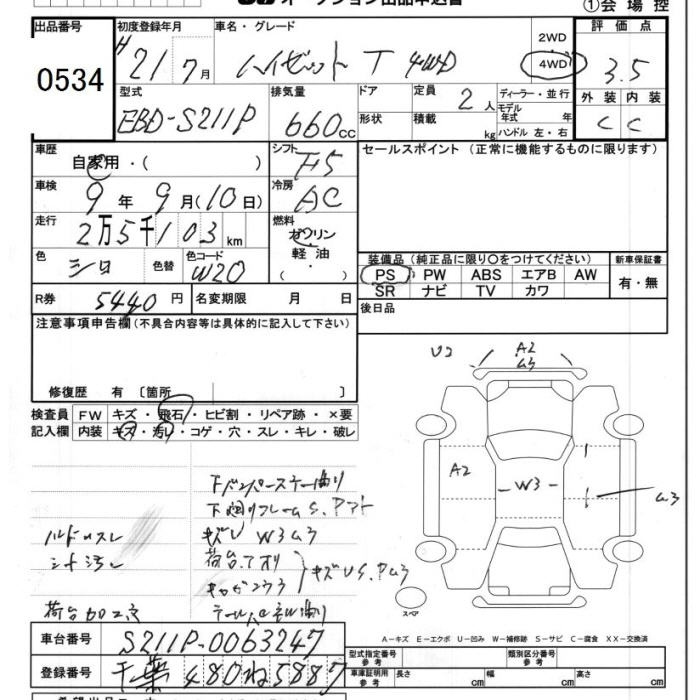 オークション出品申込書
①会場控
出品番号 初度登録年月 車名・グレード 評価点
0534 H 21 7月 ハイゼット T 4WD 2WD 4WD 3.5
型式 排気量 ドア 定員 2人 ディーラー・並行 外装 内装
EBD-S211P 660cc 形状 積載 kg モデル年式 年 ハンドル 左・右 C C
車歴 自家用・( ) シフト F5 セールスポイント(正常に機能するものに限ります)
車検 9年9月(10日) 冷房 AC
走行 2万5千103km 燃料 ガソリン・軽油 ( )
色 シロ 色替 色コード W20
装備品(純正品に限り〇をつけてください) 新車保証書
PS PW ABS エアB AW 有・無
SR ナビ TV カワ
R券 5440円 名変期限 月 日
後日品
注意事項申告欄(不具合内容等は具体的に記入して下さい)
修復歴 有〔箇所 〕
U2 A2 U3
検査員 FW キズ・飛石・ヒビ割・リペア跡・×要
記入欄 内装 キズ・汚れ・コゲ・穴・スレ・キレ・破レ
A2 W3 U3
下バンパーステー曲り
下廻りフレームS.Pアト
ハンドルスレ キズU W3 U3
シート汚レ
荷台加工穴
スペア
A-キズ E-エクボ U-凹み W-補修跡 S-サビ C-腐食 XX-交換済
車台番号 S211P-0063247
型式指定番号 参考 類別区分番号 参考
登録番号 千葉 480 ね 5887
車庫証明用 参考 長さ cm 幅 cm 高さ cm